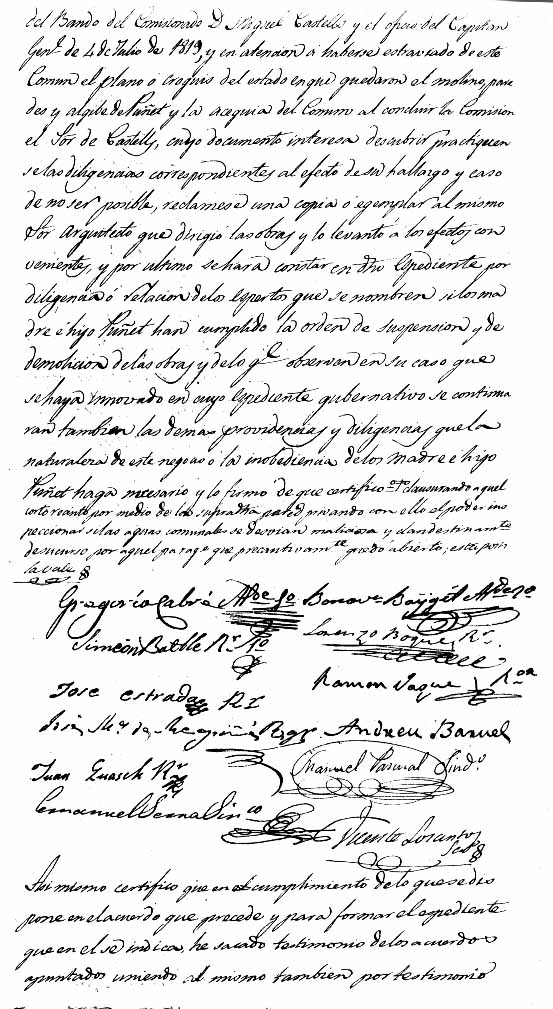 del Bando del Comisionado D. Miguel Castells y el oficio del Capitan
Genl. de 4 de Julio de 1819, y en atencion á haberse estraviado de este
Comun el plano ó croquis del estado en que quedaron el molino, pare
des y algibe de Puñet y la acequia del Comun al concluir la Comision
el Sor de Castells, cuyo documento interesa descubrir practiquen
se las diligencias correspondientes al efecto de su hallazgo y caso
de no ser posible, reclamese una copia ó egemplar al mismo
Sor Arquitecto que dirigió las obras y lo levantó á los efectos con
venientes, y por ultimo se hará constar en dho Espediente por
diligencia ó relacion de los Espertos que se nombren si los ma
dre é hijo Puñet han cumplido la orden de suspension y de
demolicion de las obras y de lo qe. observen en su caso que
se haya innovado en cuyo Espediente gubernativo se continua
ran tambien las demas providencias y diligencias que la
naturaleza de este negocio ó la inobediencia de los Madre é hijo
Puñet haga necesario y lo firmo de que certifico clausurando aquel
corto recinto por medio de la supradha pared privando con ello el poder ins
peccionar si las aguas comunales se desvian maliciosa y clandestinamte
de su curso por aquel parage que precautivamte. quedó abierto; este pos
la vale
Gregorio Cabré Alde 1o Bonova Baygèt Alde 2o
Simeon Batlle Rr. 1o Lorenzo Boque, Rr.
Jose estrada Rr Ramon Jaque Ror
José Ma. de Regor Andreu Baruel
Juan Guasch Rr. Manuel Pascual Sindo.
Emmanuel Serra Sinco
Vicente Losantos
Srio
Asi mismo certifico que en el cumplimiento de lo que se dis
pone en el acuerdo que precede y para formar el espediente
que en el se indica, he sacado testimonio de los acuerdos
apuntados uniendo al mismo tambien por testimonio